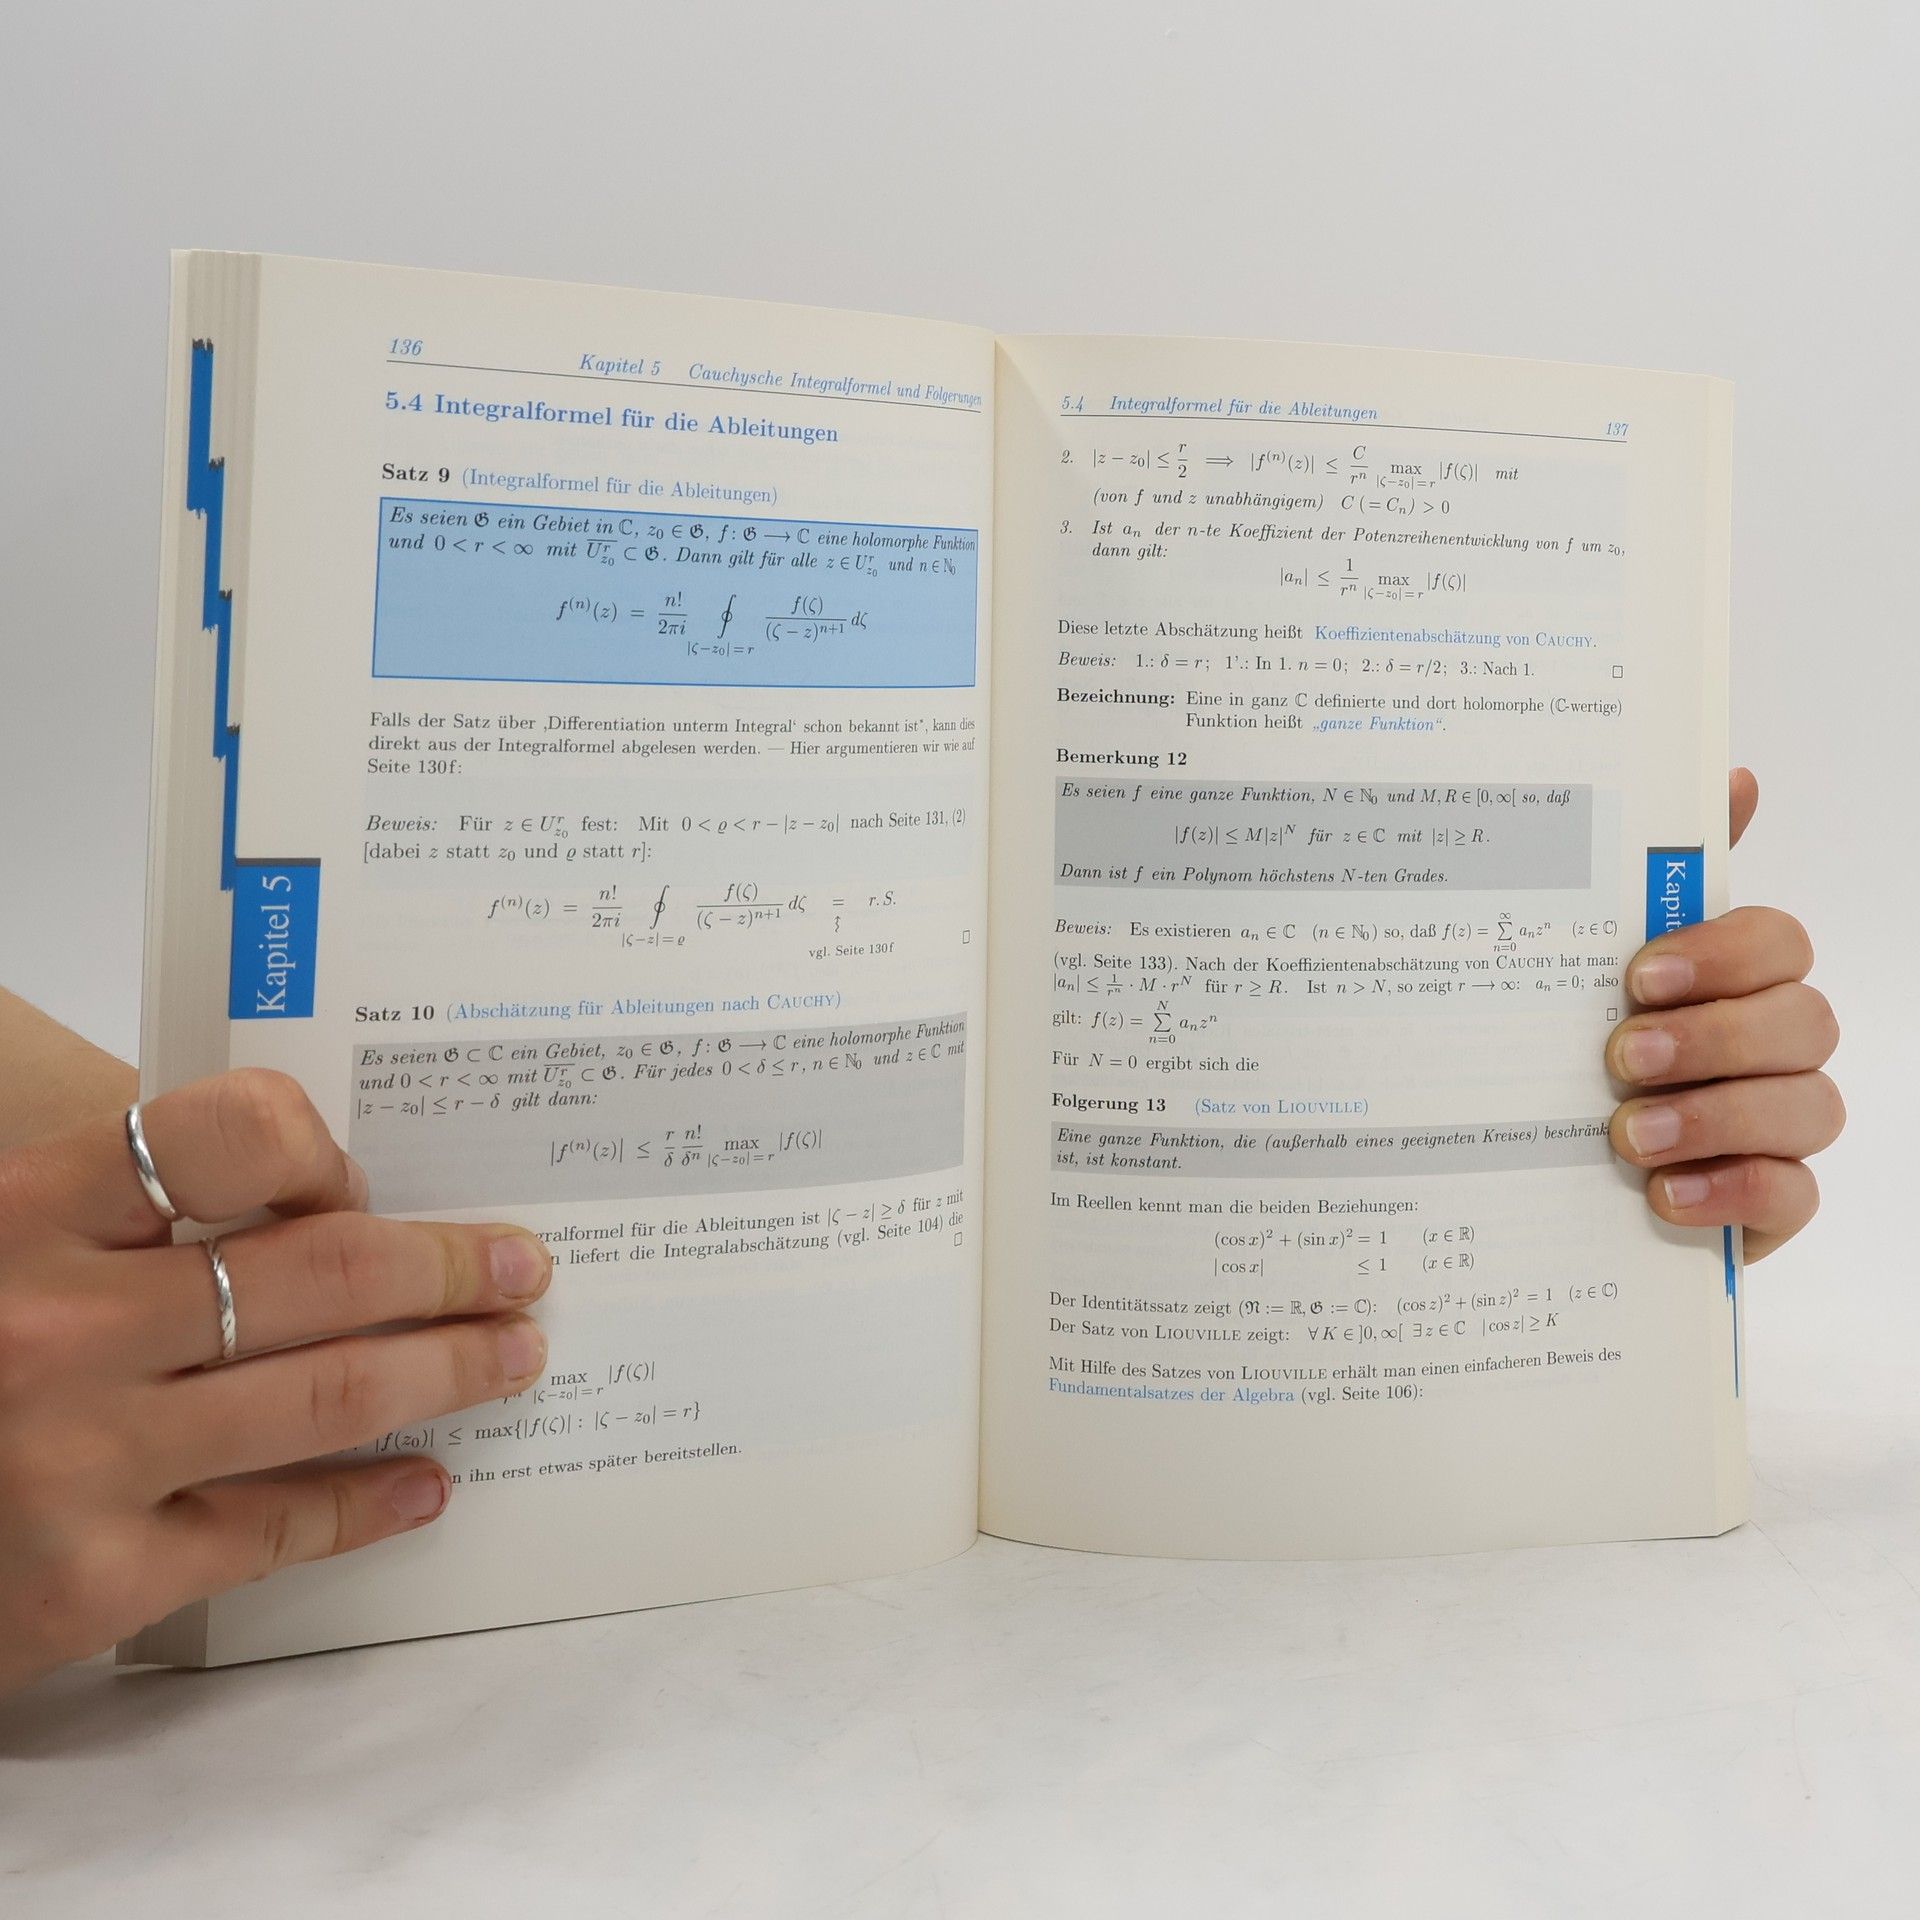 136
Kapitel 5 Cauchysche Integralformel und Folgerungen
5.4 Integralformel für die Ableitungen
Satz 9 (Integralformel für die Ableitungen)
Es seien 𝔊 ein Gebiet in ℂ, z₀ ∈ 𝔊, f : 𝔊 ⟶ ℂ eine holomorphe Funktion
und 0 < r < ∞ mit \overline{U^r_{z_0}} ⊂ 𝔊. Dann gilt für alle z ∈ U^r_{z_0} und n ∈ ℕ₀
f^{(n)}(z) = \frac{n!}{2πi} ∮_{|ζ−z_0|=r} \frac{f(ζ)}{(ζ − z)^{n+1}} dζ
Falls der Satz über ‚Differentiation unterm Integral‘ schon bekannt ist*, kann dies
direkt aus der Integralformel abgelesen werden. — Hier argumentieren wir wie auf
Seite 130f:
Beweis: Für z ∈ U^r_{z_0} fest: Mit 0 < ϱ < r − |z − z₀| nach Seite 131, (2)
[dabei z statt z₀ und ϱ statt r]:
f^{(n)}(z) = \frac{n!}{2πi} ∮_{|ζ−z|=ϱ} \frac{f(ζ)}{(ζ − z)^{n+1}} dζ = r. S.
vgl. Seite 130f □
Satz 10 (Abschätzung für Ableitungen nach CAUCHY)
Es seien 𝔊 ⊂ ℂ ein Gebiet, z₀ ∈ 𝔊, f : 𝔊 ⟶ ℂ eine holomorphe Funktion
und 0 < r < ∞ mit \overline{U^r_{z_0}} ⊂ 𝔊. Für jedes 0 < δ ≤ r, n ∈ ℕ₀ und z ∈ ℂ mit
|z − z₀| ≤ r − δ gilt dann:
|f^{(n)}(z)| ≤ \frac{r}{δ} \frac{n!}{δ^n} max_{|ζ−z_0|=r} |f(ζ)|
gralformel für die Ableitungen ist |ζ − z| ≥ δ für z mit
n liefert die Integralabschätzung (vgl. Seite 104) die
□
max_{|ζ−z_0|=r} |f(ζ)|
|f(z₀)| ≤ max{|f(ζ)| : |ζ − z₀| = r}
n ihn erst etwas später bereitstellen.
Kapitel 5
5.4 Integralformel für die Ableitungen
137
2. |z − z₀| ≤ \frac{r}{2} ⟹ |f^{(n)}(z)| ≤ \frac{C}{r^n} max_{|ζ−z_0|=r} |f(ζ)| mit
(von f und z unabhängigem) C (= Cₙ) > 0
3. Ist aₙ der n-te Koeffizient der Potenzreihenentwicklung von f um z₀,
dann gilt:
|aₙ| ≤ \frac{1}{r^n} max_{|ζ−z_0|=r} |f(ζ)|
Diese letzte Abschätzung heißt Koeffizientenabschätzung von CAUCHY.
Beweis: 1.: δ = r; 1’.: In 1. n = 0; 2.: δ = r/2; 3.: Nach 1. □
Bezeichnung: Eine in ganz ℂ definierte und dort holomorphe (ℂ-wertige)
Funktion heißt „ganze Funktion“.
Bemerkung 12
Es seien f eine ganze Funktion, N ∈ ℕ₀ und M, R ∈ [0, ∞[ so, daß
|f(z)| ≤ M|z|^N für z ∈ ℂ mit |z| ≥ R.
Dann ist f ein Polynom höchstens N-ten Grades.
Beweis: Es existieren aₙ ∈ ℂ (n ∈ ℕ₀) so, daß f(z) = \sum_{n=0}^{∞} aₙzⁿ (z ∈ ℂ)
(vgl. Seite 133). Nach der Koeffizientenabschätzung von CAUCHY hat man:
|aₙ| ≤ \frac{1}{r^n} · M · r^N für r ≥ R. Ist n > N, so zeigt r ⟶ ∞: aₙ = 0; also
gilt: f(z) = \sum_{n=0}^{N} aₙzⁿ □
Für N = 0 ergibt sich die
Folgerung 13 (Satz von LIOUVILLE)
Eine ganze Funktion, die (außerhalb eines geeigneten Kreises) beschränk
ist, ist konstant.
Im Reellen kennt man die beiden Beziehungen:
(cos x)² + (sin x)² = 1 (x ∈ ℝ)
|cos x| ≤ 1 (x ∈ ℝ)
Der Identitätssatz zeigt (𝔑 := ℝ, 𝔊 := ℂ): (cos z)² + (sin z)² = 1 (z ∈ ℂ)
Der Satz von LIOUVILLE zeigt: ∀ K ∈ ]0, ∞[ ∃ z ∈ ℂ |cos z| ≥ K
Mit Hilfe des Satzes von LIOUVILLE erhält man einen einfacheren Beweis des
Fundamentalsatzes der Algebra (vgl. Seite 106):
Kapit